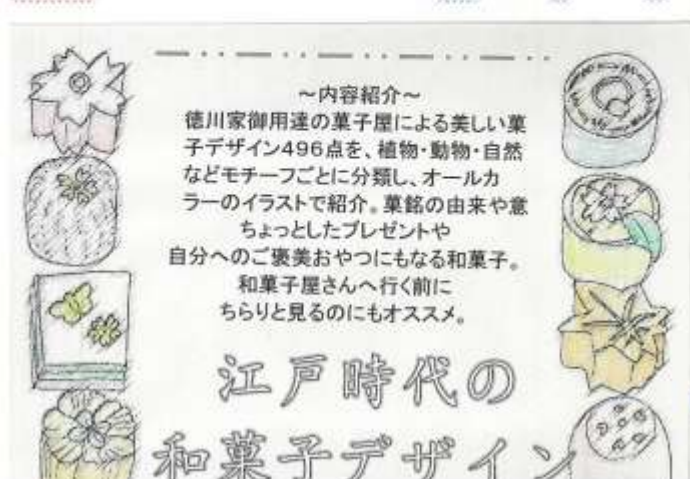 ～内容紹介～
徳川家御用達の菓子屋による美しい菓
子デザイン496点を、植物・動物・自然
などモチーフごとに分類し、オールカ
ラーのイラストで紹介。菓銘の由来や意
ちょっとしたプレゼントや
自分へのご褒美おやつにもなる和菓子。
和菓子屋さんへ行く前に
ちらりと見るのにもオススメ。
江戸時代の
和菓子デザイン